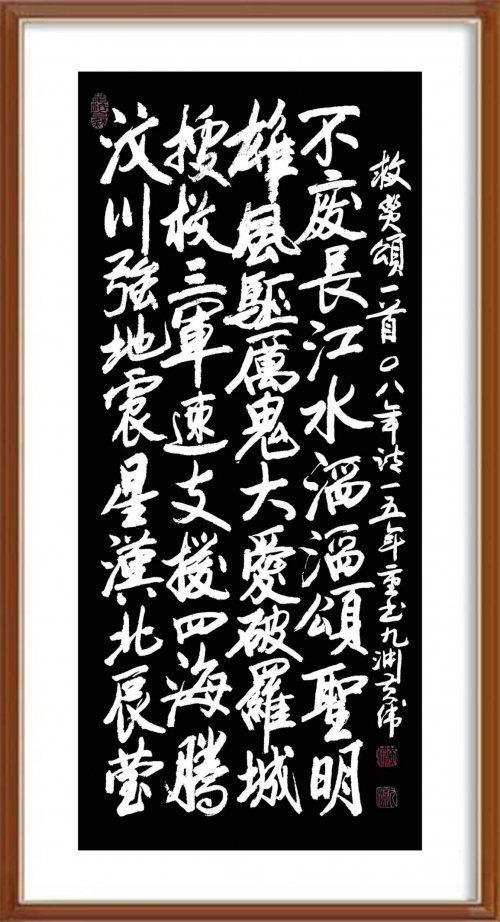 汶川強地震星漢北辰莹
搜救三軍速支援四海騰
雄風驅厲鬼大愛破羅城
不廢長江水滔滔頌聖明
救勞頌一首〇八年诗一五年重书九渊